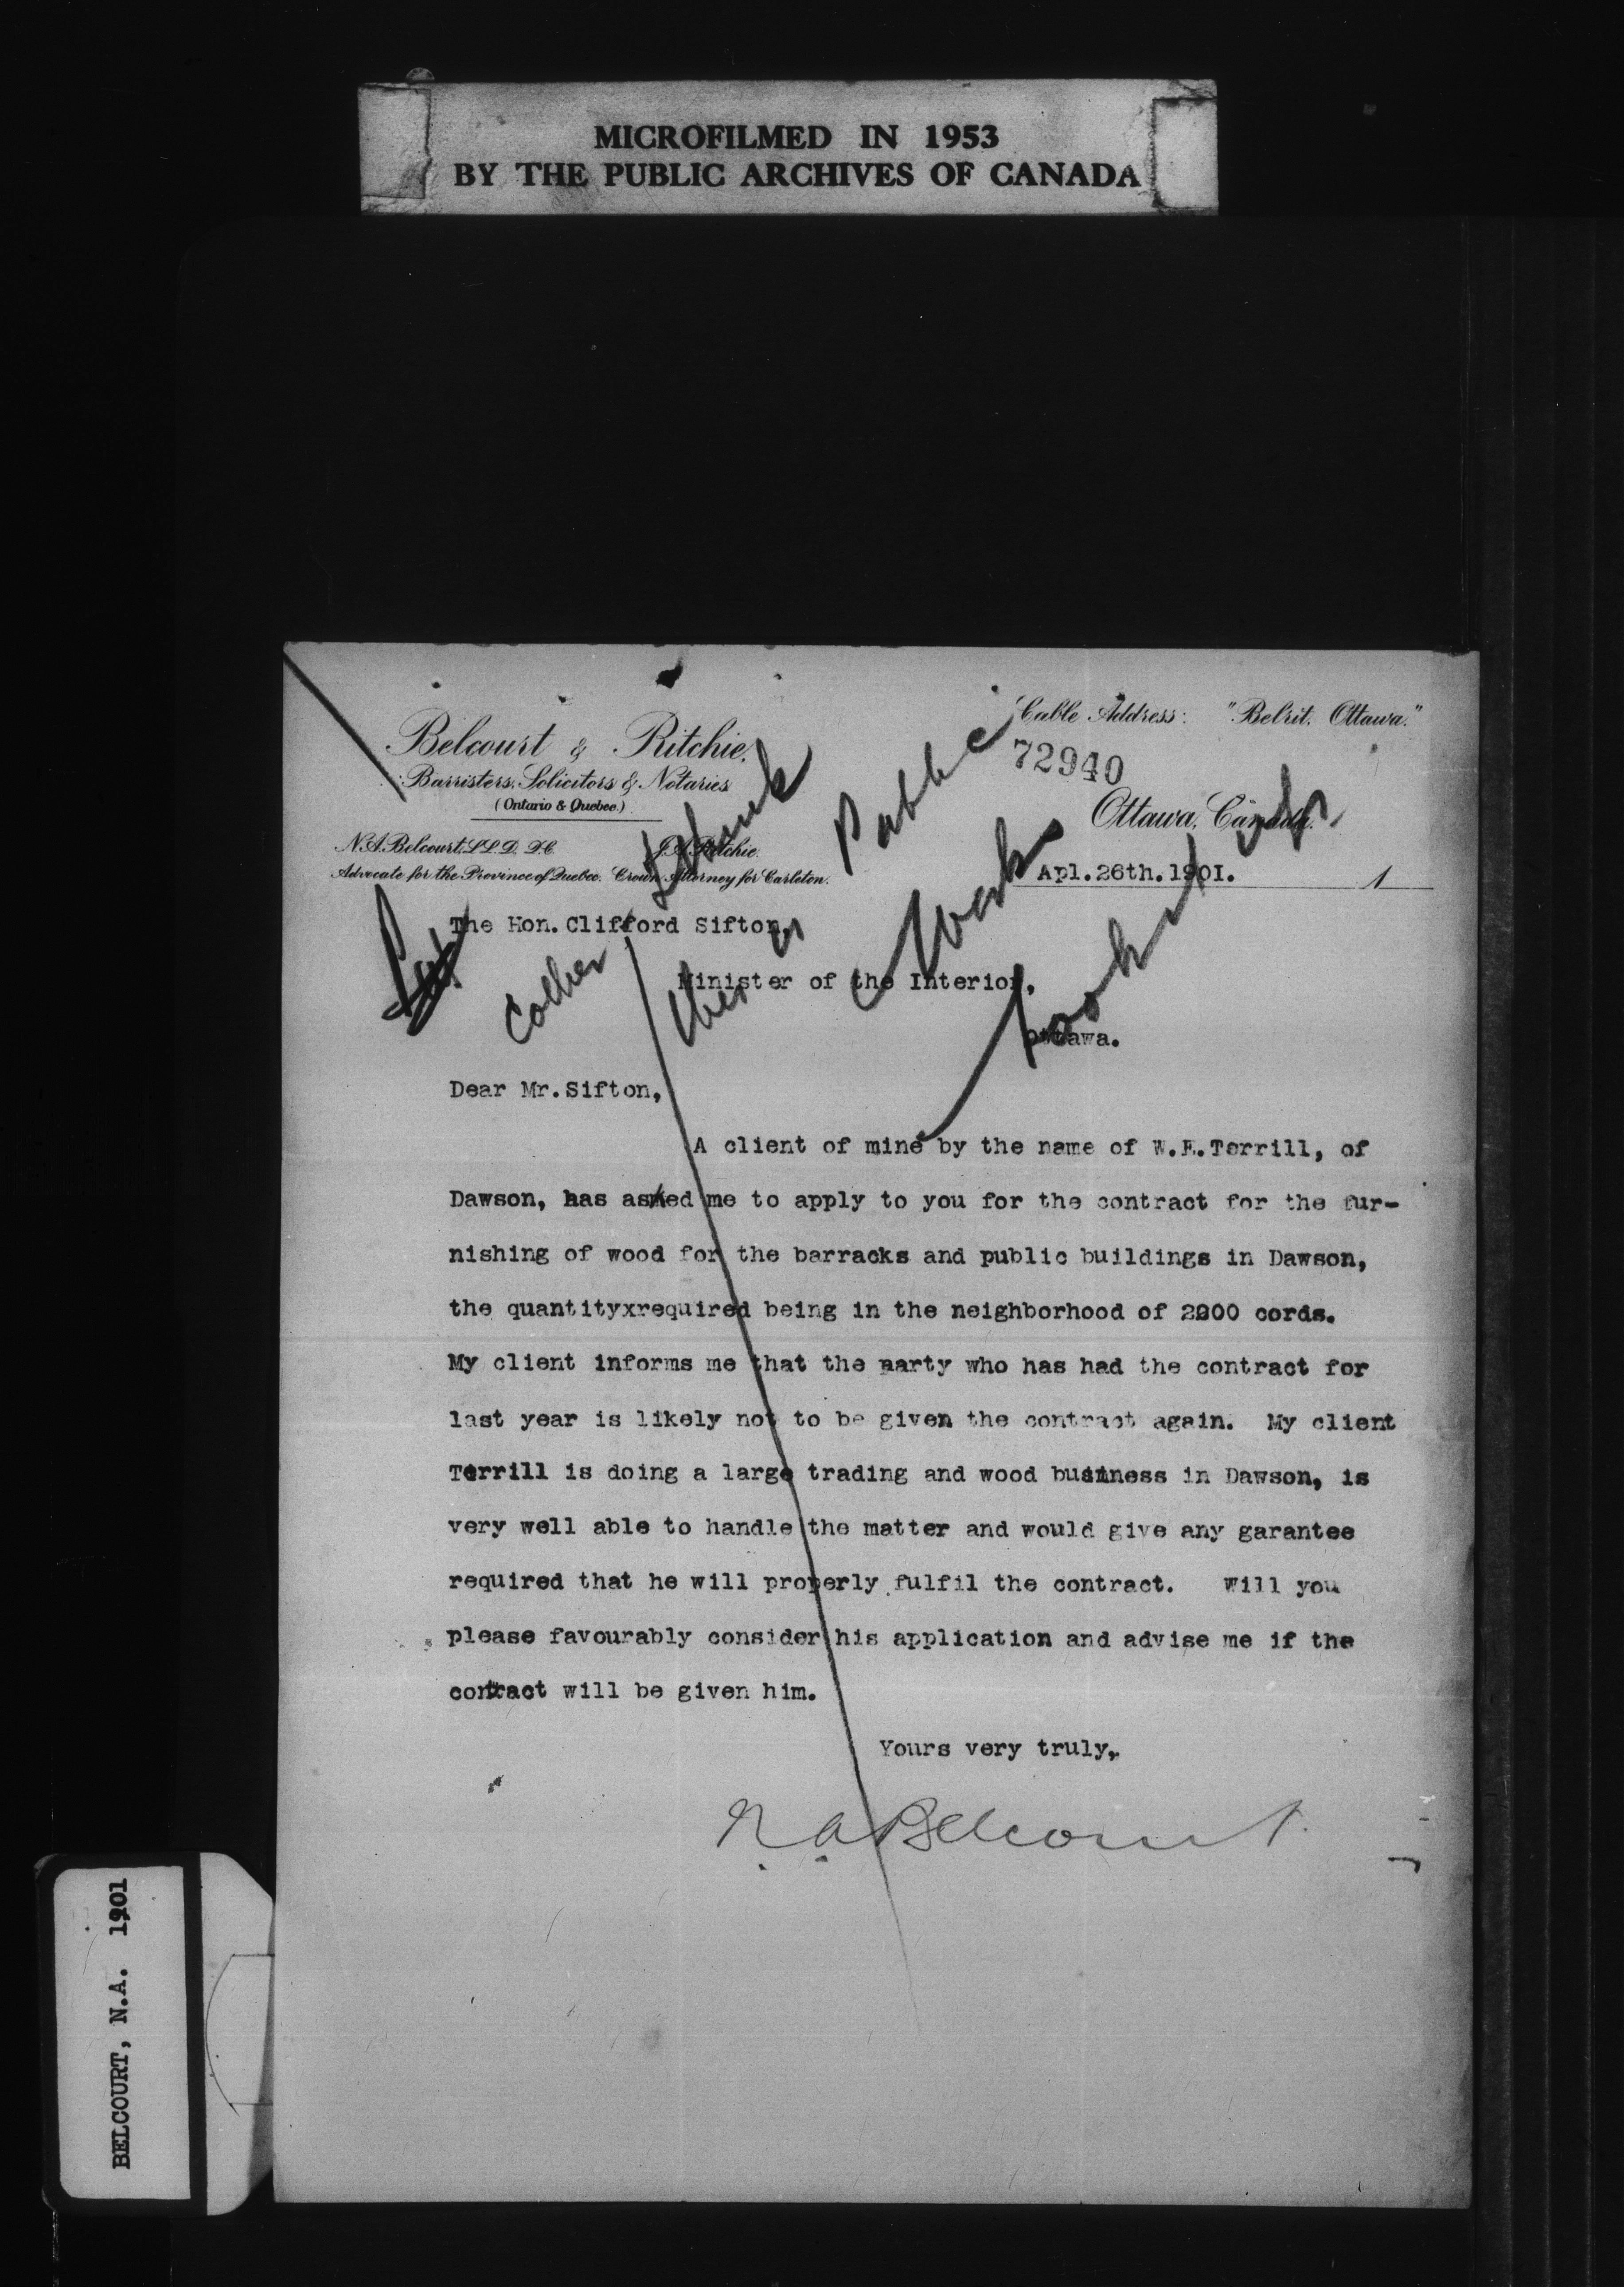 MICROFILMED IN 1953
BY THE PUBLIC ARCHIVES OF CANADA
Cable Address: "Belrit, Ottawa."
Belcourt & Ritchie.
72940
Barristers, Solicitors & Notaries
(Ontario & Quebec.)
Ottawa, Canada.
N.A. Belcourt, LL.D. Q.C. J.A. Ritchie.
Advocate for the Province of Quebec. Crown Attorney for Carleton.
Apl.26th.1901. 1
Say I think
either Public
Works
The Hon. Clifford Sifton,
Minister of the Interior,
Ottawa.
Dear Mr. Sifton,
A client of mine by the name of W.E.Terrill, of
Dawson, has asked me to apply to you for the contract for the fur-
nishing of wood for the barracks and public buildings in Dawson,
the quantityxrequired being in the neighborhood of 2200 cords.
My client informs me that the party who has had the contract for
last year is likely not to be given the contract again. My client
Terrill is doing a large trading and wood business in Dawson, is
very well able to handle the matter and would give any garantee
required that he will properly fulfil the contract. Will you
please favourably consider his application and advise me if the
contract will be given him.
Yours very truly,
N.A. Belcourt.
BELCOURT, N.A. 1901